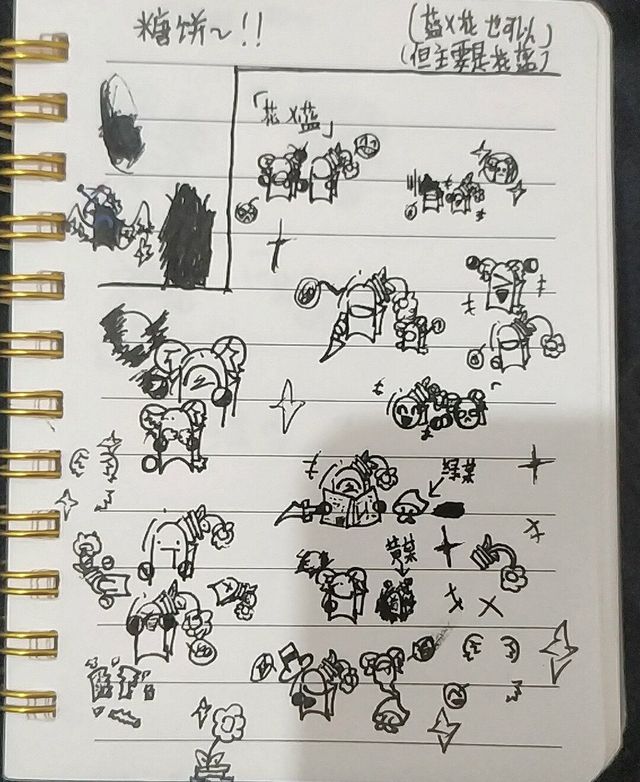 糖饼~!!
(蓝X花也可以)
(但主要是花蓝)
「花X蓝」
绿菜
黄菜